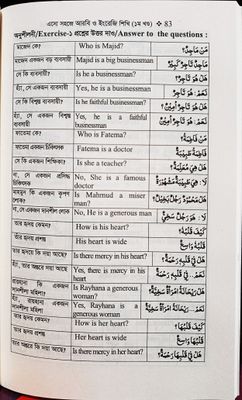 এসো সহজে আরবি ও ইংরেজি শিখি (১ম খণ্ড) ❖ 83
অনুশীলনী/Exercise-১ প্রশ্নের উত্তর দাও/Answer to the questions :
মাজেদ কে? Who is Majid? مَنْ مَاجِدٌ؟
মাজেদ একজন বড় ব্যবসায়ী Majid is a big businessman مَاجِدٌ تَاجِرٌ كَبِيْرٌ
সে কি ব্যবসায়ী? Is he a businessman? هَلْ هُوَ تَاجِرٌ؟
হ্যাঁ, সে একজন ব্যবসায়ী Yes, he is a businessman نَعَمْ، هُوَ تَاجِرٌ
সে কি বিশ্বস্ত ব্যবসায়ী? Is he faithful businessman?
হ্যাঁ, সে একজন বিশ্বস্ত ব্যবসায়ী Yes, he is a faithful businessman
ফাতেমা কে? Who is Fatema? مَنْ فَاطِمَةُ؟
ফাতেমা একজন চিকিৎসক Fatema is a doctor فَاطِمَةُ طَبِيْبَةٌ
সে কি শিক্ষিকা? Is she a teacher? هَلْ هِيَ مُعَلِّمَةٌ؟
না, সে একজন প্রসিদ্ধ চিকিৎসক No, She is a famous doctor لَا، هِيَ طَبِيْبَةٌ مَشْهُوْرَةٌ
মাহমুদ কি একজন কৃপণ লোক? Is Mahmud a miser man? هَلْ مَحْمُوْدٌ رَجُلٌ بَخِيْلٌ؟
না, সে একজন দানশীল লোক No, He is a generous man لَا، هُوَ رَجُلٌ سَخِيٌّ
তার হৃদয় কেমন? How is his heart? كَيْفَ قَلْبُهُ؟
তার হৃদয় প্রশস্ত His heart is wide قَلْبُهُ وَاسِعٌ
তার হৃদয়ে কি দয়া আছে? Is there mercy in his heart? هَلْ فِيْ قَلْبِهِ رَحْمَةٌ؟
হ্যাঁ, তার অন্তরে দয়া আছে Yes, there is mercy in his heart نَعَمْ، فِيْ قَلْبِهِ رَحْمَةٌ
রায়হানা কি একজন দানশীলা মহিলা? Is Rayhana a generous woman? هَلْ رَيْحَانَةُ امْرَأَةٌ سَخِيَّةٌ؟
হ্যাঁ, রায়হানা একজন দানশীলা মহিলা Yes, Rayhana is a generous woman نَعَمْ، رَيْحَانَةُ امْرَأَةٌ سَخِيَّةٌ
তার হৃদয় কেমন? How is her heart? كَيْفَ قَلْبُهَا؟
তার হৃদয় প্রশস্ত Her heart is wide قَلْبُهَا وَاسِعٌ
তার অন্তরে কি দয়া আছে? Is there mercy in her heart? هَلْ فِيْ قَلْبِهَا رَحْمَةٌ؟